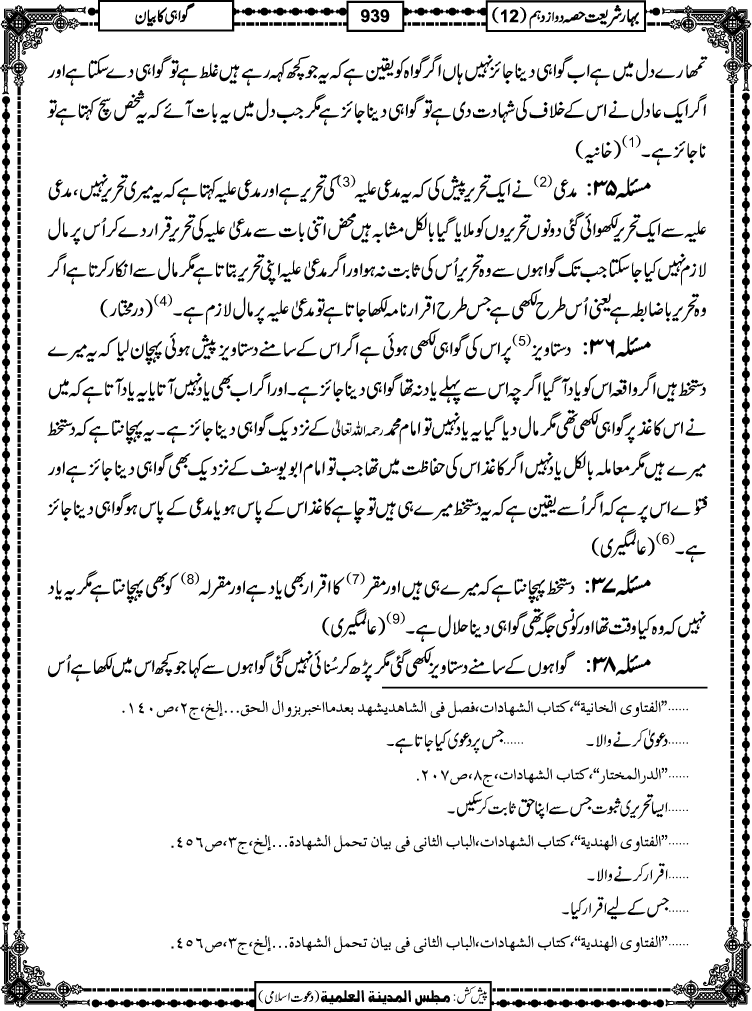 بہارِ شریعت حصہ دوازدہم (12)
939
گواہی کا بیان
تمھارے دل میں ہے اب گواہی دینا جائز نہیں ہاں اگر گواہ کو یقین ہے کہ یہ جو کچھ کہہ رہے ہیں غلط ہے تو گواہی دے سکتا ہے اور
اگر ایک عادل نے اس کے خلاف کی شہادت دی ہے تو گواہی دینا جائز ہے مگر جب دل میں یہ بات آئے کہ یہ شخص سچ کہتا ہے تو
ناجائز ہے۔(1) (خانیہ)
مسئلہ ۳۵: مدعی(2) نے ایک تحریر پیش کی کہ یہ مدعیٰ علیہ(3) کی تحریر ہے اور مدعیٰ علیہ کہتا ہے کہ یہ میری تحریر نہیں، مدعیٰ
علیہ سے ایک تحریر لکھوائی گئی دونوں تحریروں کو ملایا گیا بالکل مشابہ ہیں محض اتنی بات سے مدعیٰ علیہ کی تحریر قرار دے کر اُس پر مال
لازم نہیں کیا جاسکتا جب تک گواہوں سے وہ تحریر اُس کی ثابت نہ ہو اور اگر مدعیٰ علیہ اپنی تحریر بتاتا ہے مگر مال سے انکار کرتا ہے اگر
وہ تحریر باضابطہ ہے یعنی اُس طرح لکھی ہے جس طرح اقرار نامہ لکھا جاتا ہے تو مدعیٰ علیہ پر مال لازم ہے۔(4) (درمختار)
مسئلہ ۳۶: دستاویز(5) پر اس کی گواہی لکھی ہوئی ہے اگر اس کے سامنے دستاویز پیش ہوئی پہچان لیا کہ یہ میرے
دستخط ہیں اگر واقعہ اس کو یاد آگیا اگرچہ اس سے پہلے یاد نہ تھا گواہی دینا جائز ہے۔ اور اگر اب بھی یاد نہیں آتا یا یہ یاد آتا ہے کہ میں
نے اس کاغذ پر گواہی لکھی تھی مگر مال دیا گیا یہ یاد نہیں تو امام محمد رحمہ اللہ تعالیٰ کے نزدیک گواہی دینا جائز ہے۔ یہ پہچانتا ہے کہ دستخط
میرے ہیں مگر معاملہ بالکل یاد نہیں اگر کاغذ اس کی حفاظت میں تھا جب تو امام ابو یوسف کے نزدیک بھی گواہی دینا جائز ہے اور
فتوٰے اس پر ہے کہ اگر اُسے یقین ہے کہ یہ دستخط میرے ہی ہیں تو چاہے کاغذ اس کے پاس ہو یا مدعی کے پاس ہو گواہی دینا جائز
ہے۔(6) (عالمگیری)
مسئلہ ۳۷: دستخط پہچانتا ہے کہ میرے ہی ہیں اور مقر(7) کا اقرار بھی یاد ہے اور مقرلہ(8) کو بھی پہچانتا ہے مگر یہ یاد
نہیں کہ وہ کیا وقت تھا اور کونسی جگہ تھی گواہی دینا حلال ہے۔(9) (عالمگیری)
مسئلہ ۳۸: گواہوں کے سامنے دستاویز لکھی گئی مگر پڑھ کر سُنائی نہیں گئی گواہوں سے کہا جو کچھ اس میں لکھا ہے اُس
......”الفتاوی الخانیة“،کتاب الشهادات،فصل فی الشاهدیشهد بعدمااخبربزوال الحق...إلخ،ج۲،ص۱٤۰.
......دعویٰ کرنے والا۔ ......جس پر دعوی کیا جاتا ہے۔
......”الدرالمختار“،کتاب الشهادات،ج۸،ص۲۰۷.
......ایسا تحریری ثبوت جس سے اپنا حق ثابت کرسکیں۔
......”الفتاوی الهندیة“،کتاب الشهادات،الباب الثانی فی بیان تحمل الشهادة...إلخ،ج۳،ص٤٥٦.
......اقرار کرنے والا۔
......جس کے لیے اقرار کیا۔
......”الفتاوی الهندیة“،کتاب الشهادات،الباب الثانی فی بیان تحمل الشهادة...إلخ،ج۳،ص٤٥٦.
پیش کش: مجلس المدینة العلمیة (دعوت اسلامی)